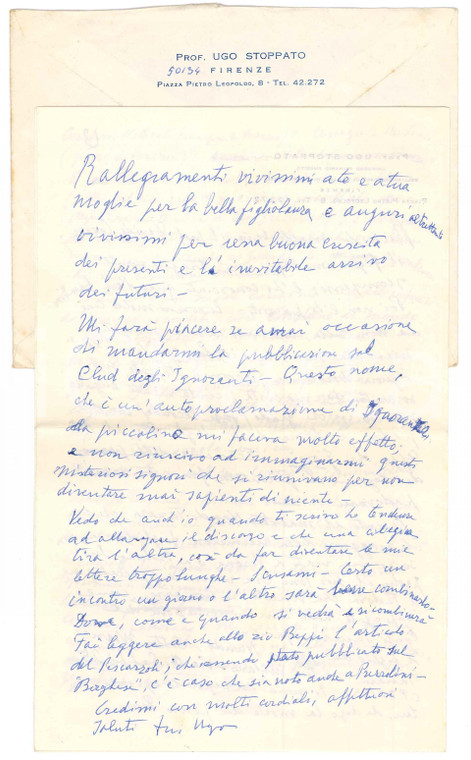 PROF. UGO STOPPATO
50134 FIRENZE
PIAZZA PIETRO LEOPOLDO, 8 - TEL. 42.272
Rallegramenti vivissimi a te e a tua
moglie per la bella figliolanza e auguri altrettanto
vivissimi per una buona crescita
dei presenti e l'inevitabile arrivo
dei futuri -
Mi farà piacere se avrai occasione
di mandarmi la pubblicazione sul
Club degli Ignoranti - Questo nome,
che è un'autoproclamazione di
da piccolino mi faceva molto effetto;
e non riuscivo ad immaginarmi questi
misteriosi signori che si riunivano per non
diventare mai sapienti di niente -
Vedo che anch'io quando ti scrivo ho tendenza
ad allargare il discorso e che una ciliegia
tira l'altra, così da far diventare le mie
lettere troppo lunghe - Scusami - Certo un
incontro un giorno o l'altro sarà combinato -
Dove, come e quando si vedrà e si combinerà
Fai leggere anche allo zio Beppi l'articolo
del Pescarzoli; che essendo stato pubblicato sul
"Borghese", c'è caso che sia noto anche a
Credimi con molti cordiali, affettuosi
saluti tuo Ugo